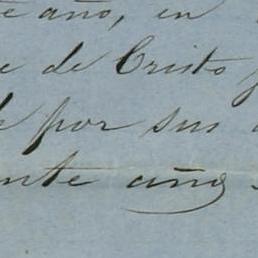 año, en
de Cristo
por sus
ente año